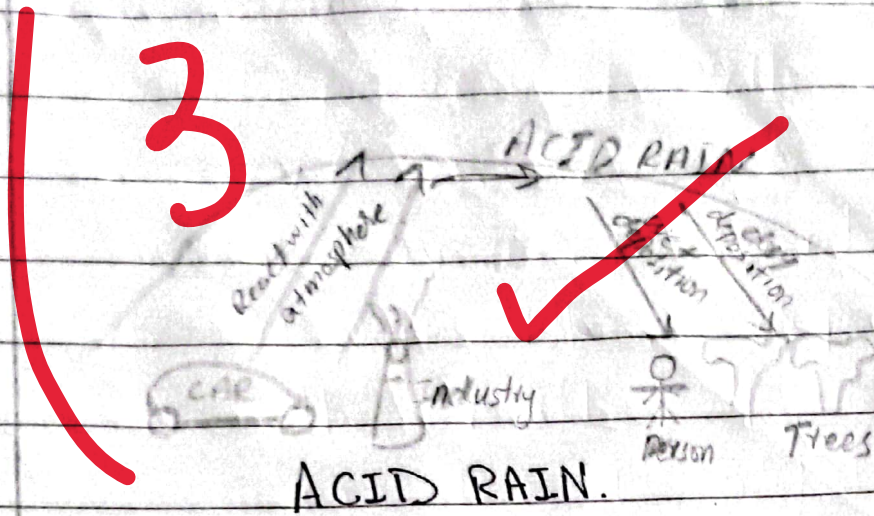 3
ACID RAIN
React with
atmosphere
deposition
dry
deposition
CAR
Industry
Person
Trees
ACID RAIN.